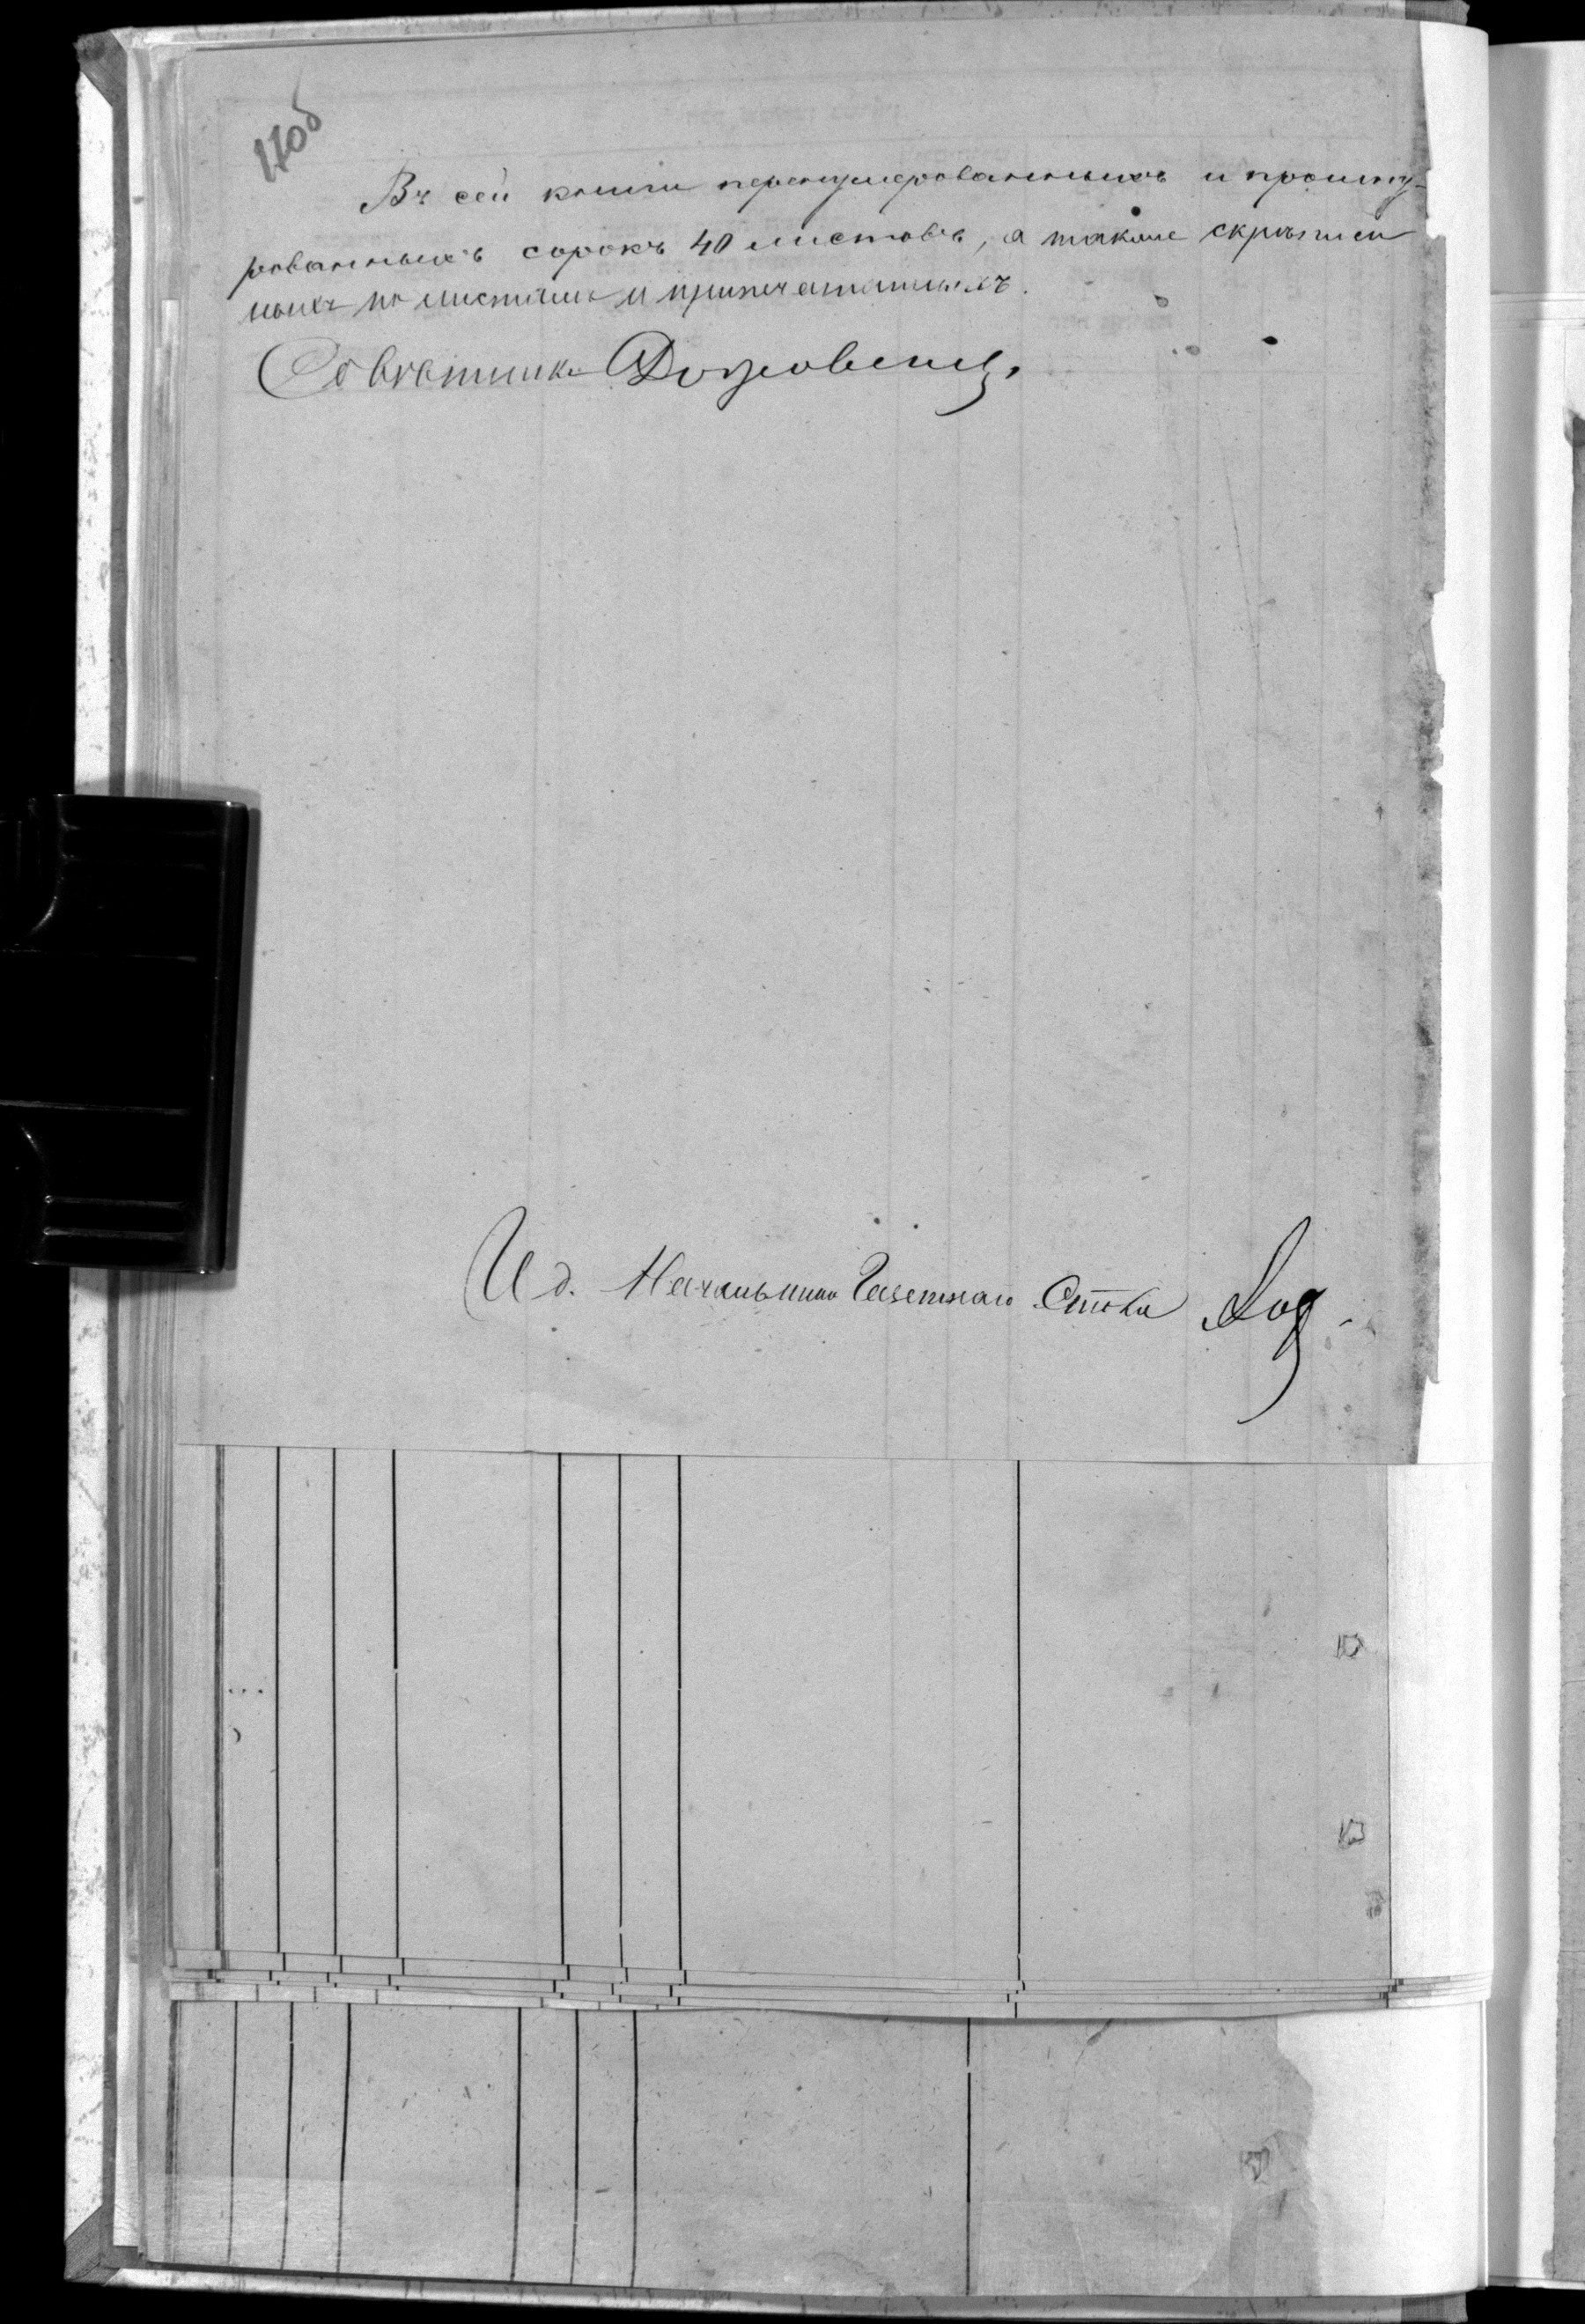 110б
Въ сей книги перенумерованныхъ и прошну-
рованныхъ сорокъ 40 листовъ, а также скрѣплен
ныхъ по листамъ и припечатанныхъ.
Совѣтникъ
И д. Начальника Газетнаго Стола